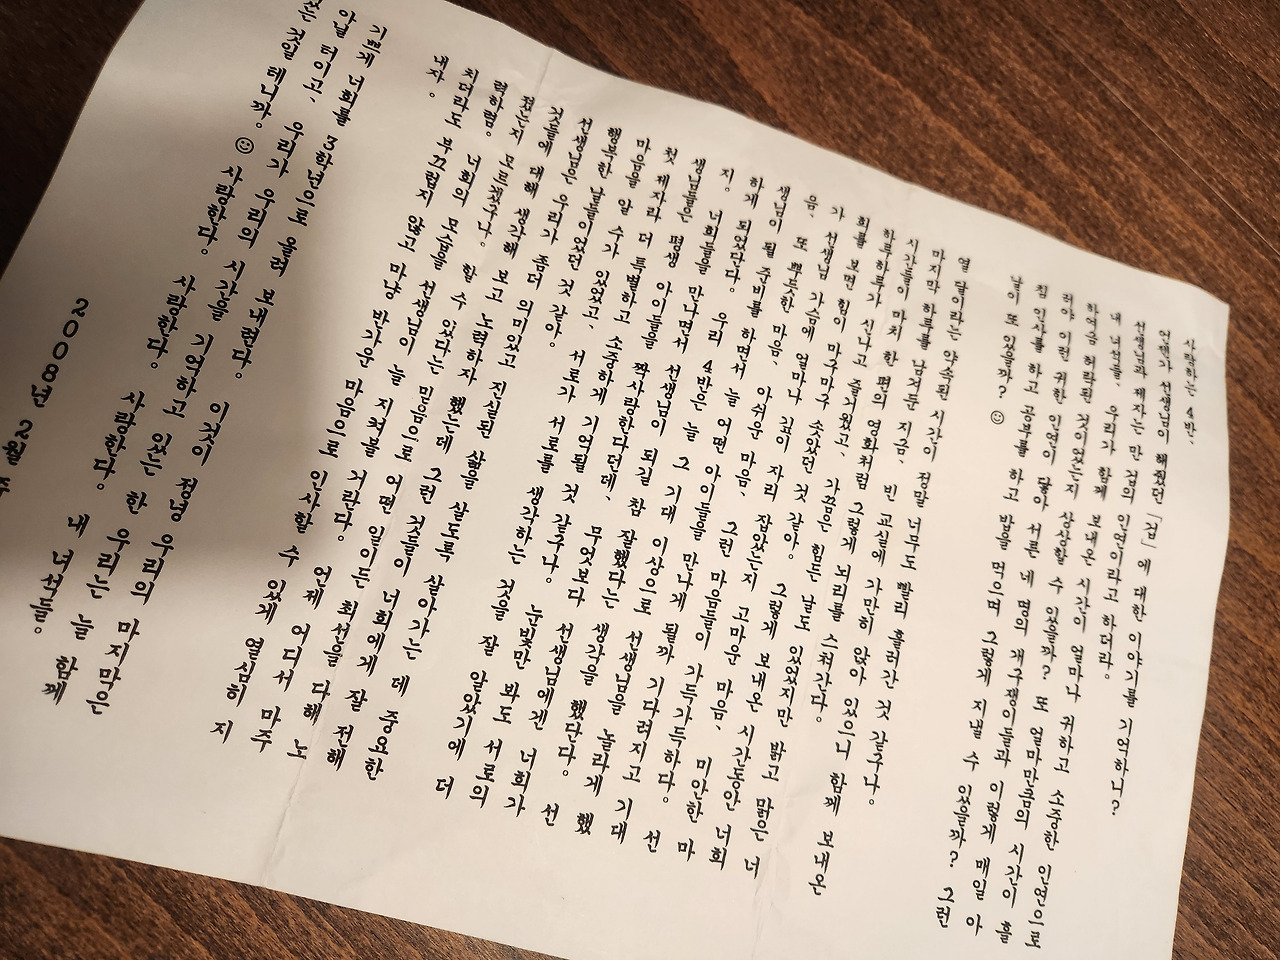 사랑하는 4반,
언젠가 선생님이 해줬던 「겁」에 대한 이야기를 기억하니?
선생님과 제자는 만 겁의 인연이라고 하더라.
내 녀석들, 우리가 함께 보내온 시간이 얼마나 귀하고 소중한 인연으로
하여금 허락된 것이었는지 상상할 수 있을까? 또 얼마만큼의 시간이 흘
러야 이런 귀한 인연이 닿아 서른 네 명의 개구쟁이들과 이렇게 매일 아
침 인사를 하고 공부를 하고 밥을 먹으며 그렇게 지낼 수 있을까? 그런
날이 또 있을까? ☺
열 달이라는 약속된 시간이 정말 너무도 빨리 흘러간 것 같구나.
마지막 하루를 남겨둔 지금, 빈 교실에 가만히 앉아 있으니 함께 보내온
시간들이 마치 한 편의 영화처럼 그렇게 뇌리를 스쳐간다.
하루하루가 신나고 즐거웠고, 가끔은 힘든 날도 있었지만 밝고 맑은 너
희를 보면 힘이 마구마구 솟았던 것 같아. 그렇게 보내온 시간동안 너희
가 선생님 가슴에 얼마나 깊이 자리 잡았는지 고마운 마음, 미안한 마
음, 또 뿌듯한 마음, 아쉬운 마음, 그런 마음들이 가득가득하다.
생님이 될 준비를 하면서 늘 어떤 아이들을 만나게 될까 기다려지고 기대
하게 되었단다. 우리 4반은 늘 그 기대 이상으로 선생님을 놀라게 했
지. 너희들을 만나면서 선생님이 되길 참 잘했다는 생각을 했단다. 선
생님들은 평생 아이들을 짝사랑한다던데, 무엇보다 선생님에겐 너희가
첫 제자라 더 특별하고 소중하게 기억될 것 같구나. 눈빛만 봐도 서로의
마음을 알 수가 있었고, 서로가 서로를 생각하는 것을 잘 알았기에 더
행복한 날들이었던 것 같아.
선생님은 우리가 좀더 의미있고 진실된 삶을 살도록 살아가는 데 중요한
것들에 대해 생각해 보고 노력하자 했는데 그런 것들이 너희에게 잘 전해
졌는지 모르겠구나. 할 수 있다는 믿음으로 어떤 일이든 최선을 다해 노
력하렴. 너희의 모습을 선생님이 늘 지켜볼 거란다. 언제 어디서 마주
치더라도 부끄럽지 않고 마냥 반가운 마음으로 인사할 수 있게 열심히 지
내자.
기쁘게 너희를 3학년으로 올려 보내련다. 이것이 정녕 우리의 마지막은
아닐 테이고, 우리가 우리의 시간을 기억하고 있는 한 우리는 늘 함께
있는 것일 테니까. ☺ 사랑한다. 사랑한다. 사랑한다. 내 녀석들.
2008년 2월